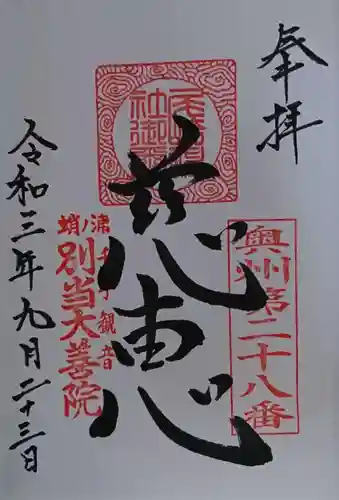 奉拝
奥州第二十八番
慈恵
蛸ノ浦千手観音
別当大善院
令和三年九月二十三日